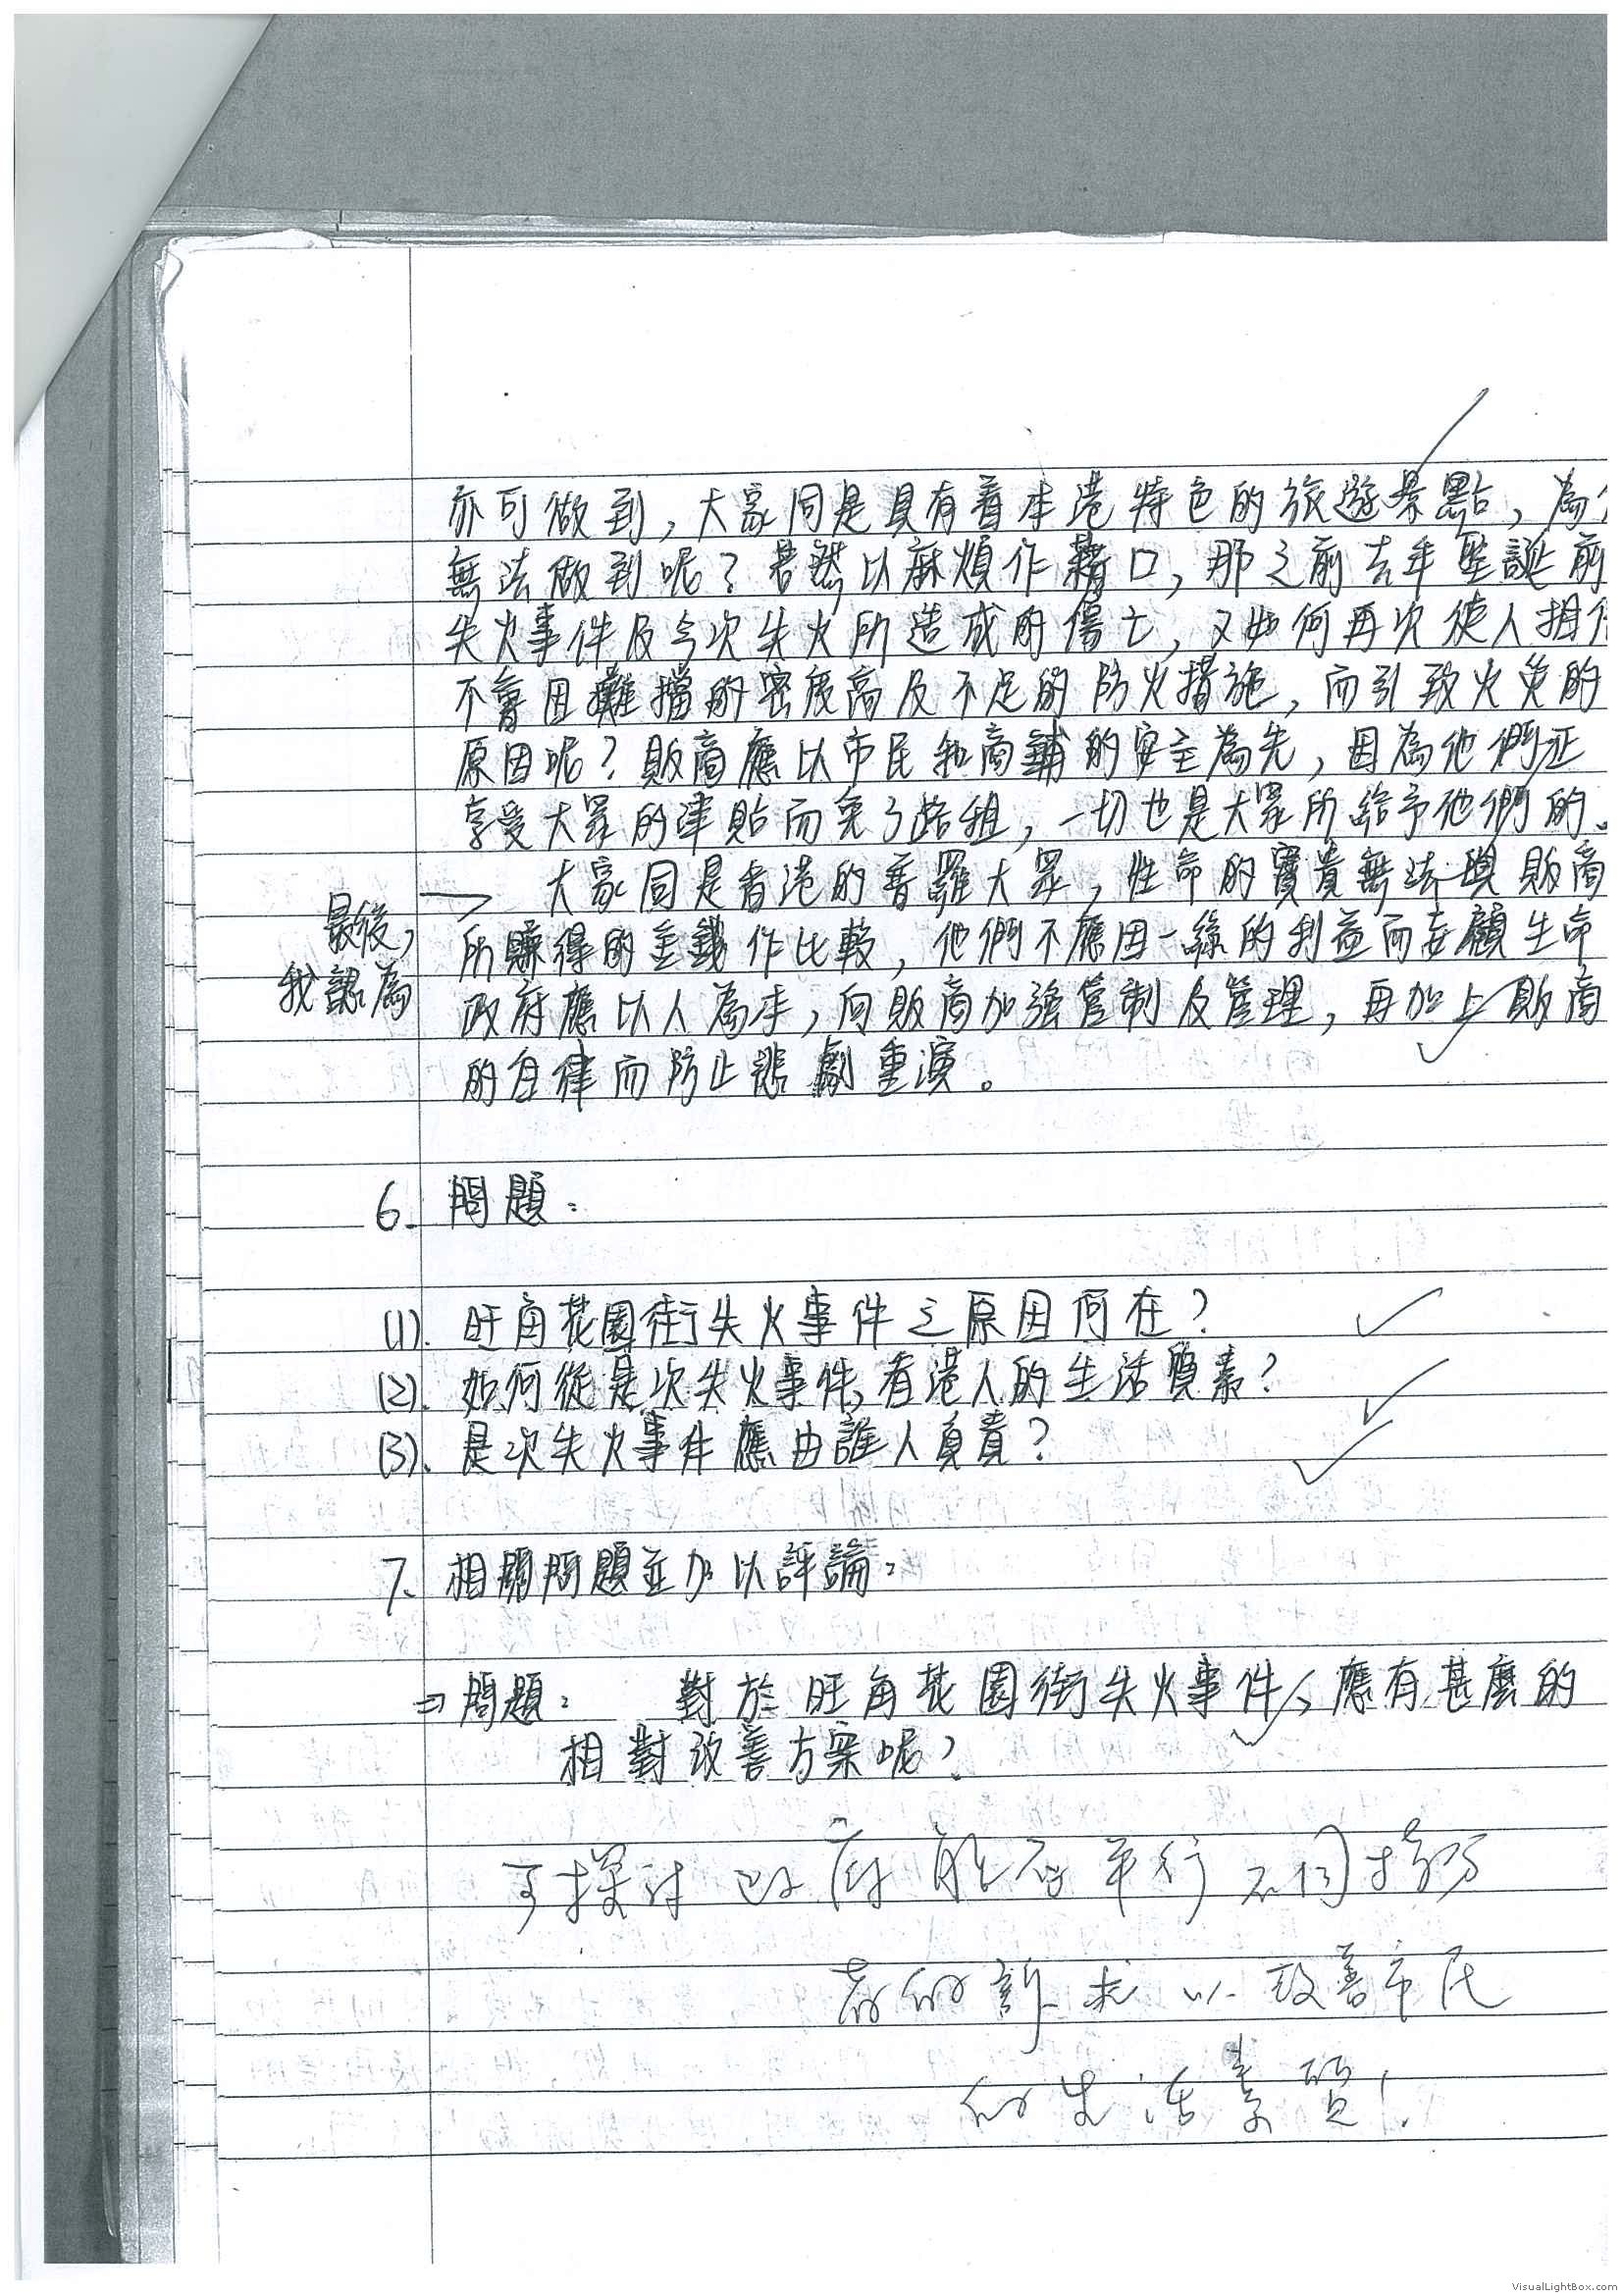 亦可做到，大家同是具有着本港特色的旅遊景點，為
無法做到呢？若然以麻煩作藉口，那之前去年聖誕前
失火事件及今次失火所造成的傷亡，又如何再次使人相
不會因攤檔的密度高及不足的防火措施，而引致火災的
原因呢？販商應以市民和商鋪的安全為先，因為他們正
享受大眾的津貼而免了路租，一切也是大眾所給予他們的。
最後，我認為
大家同是香港的普羅大眾，性命的寶貴無法與販商
所賺得的金錢作比較，他們不應因一絲的利益而妄顧生命
政府應以人為本，向販商加強管制及管理，再加上販商
的自律而防止悲劇重演。
6. 問題：
(1). 旺角花園街失火事件之原因何在？
(2). 如何從是次失火事件，看港人的生活質素？
(3). 是次失火事件應由誰人負責？
7. 相關問題並加以評論：
⇒問題： 對於旺角花園街失火事件，應有甚麼的
相對改善方案呢？
可探討政府能否平衡不同持份
者的訴求以改善市民
的生活素質！
VisualLightBox.com